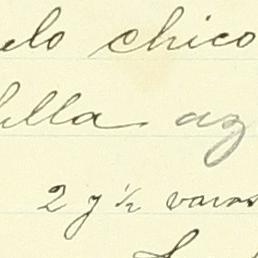 elo chico
illa az
2 y ½ varas